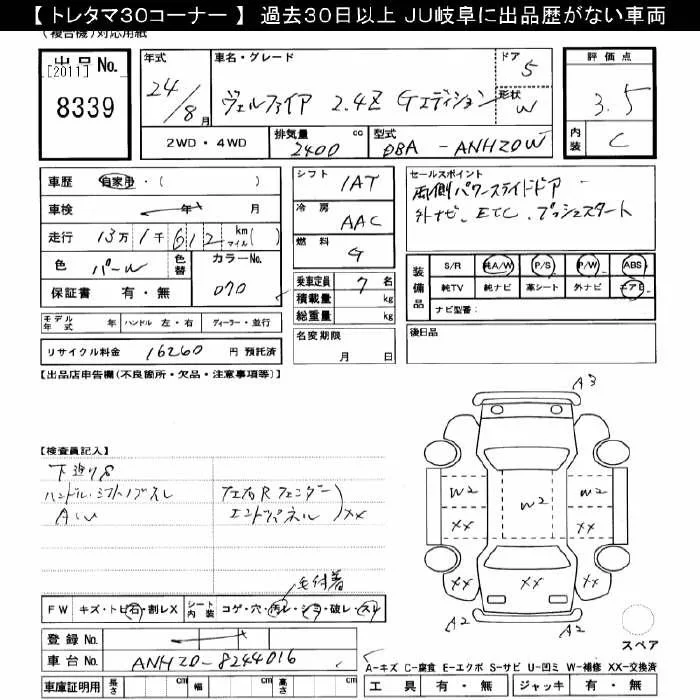 【 トレタマ30コーナー 】 過去30日以上 JU岐阜に出品歴がない車両
(複合機)対応用紙
出品 No.
[2011]
8339
年式
24/8月
車名・グレード
ヴェルファイア 2.4Z Gエディション
ドア
5
形状
W
評価点
3.5
内装
C
2WD・4WD
排気量
2400 cc
型式
DBA - ANH20W
車歴 自家用・( )
車検 年 月
走行 13万1千612 km マイル( )
色 パール
色替
カラーNo.
070
保証書 有・無
シフト
IAT
冷房
AAC
燃料
G
乗車定員 7 名
積載量 kg
総重量 kg
セールスポイント
両側パワースライドドア
外ナビ、ETC、プッシュスタート
装備品
S/R 純A/W P/S P/W ABS
純TV 純ナビ 革シート 外ナビ エアB
ナビ型番:
モデル年式 年 ハンドル 左・右 ディーラー・並行
名変期限
月 日
後日品
リサイクル料金 16260 円 預託済
【出品店申告欄(不良箇所・欠品・注意事項等)】
【検査員記入】
ハンドル・シフトノブスレ
AW
エンドパネル
XX
A3
W2
W2
W2
XX
XX
XX
XX
XX
A2
A2
毛付着
FW キズ・トビ石・割レX
シート内装 コゲ・穴・汚レ・シミ・破レ・スレ
スペア
登録 No.
車台 No. ANH20-8244016
A-キズ C-腐食 E-エクボ S-サビ U-凹ミ W-補修 XX-交換済
車庫証明用 長さ cm 幅 cm 高さ cm
工具 有・無 ジャッキ 有・無